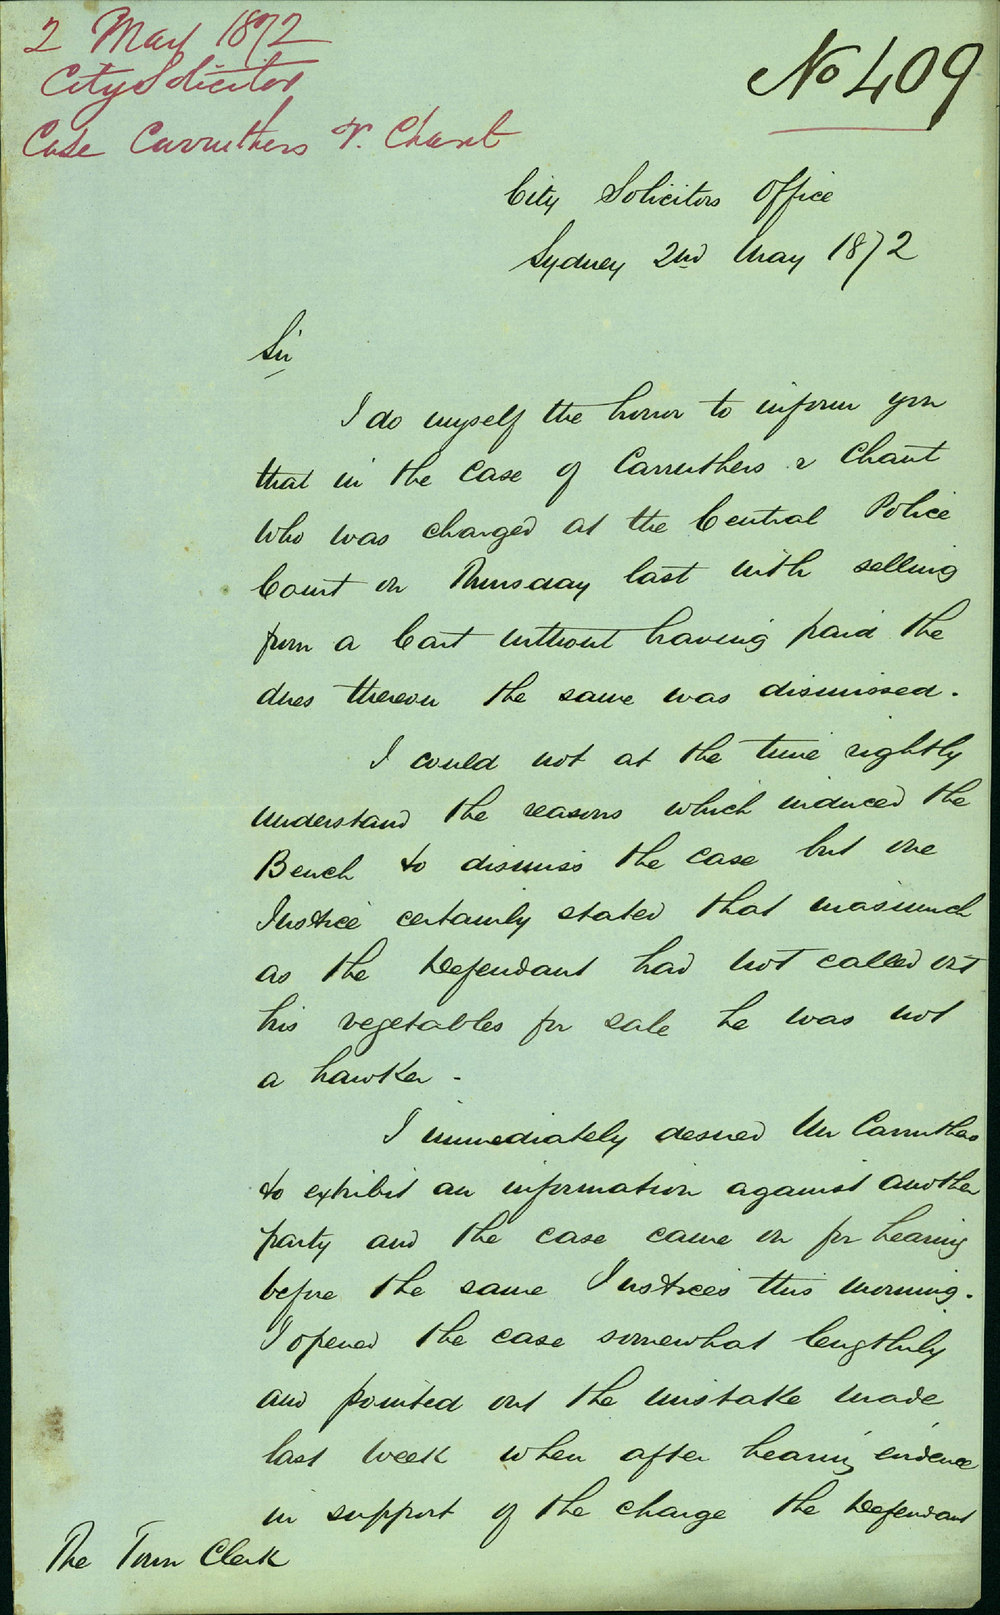 2 May 1872
City Solicitor
Case Carruthers v. Chant
No 409
City Solicitors Office
Sydney 2nd May 1872
Sir
I do myself the honor to inform you
that in the case of Carruthers v Chant
who was charged at the Central Police
Court on Thursday last with selling
from a Cart without having paid the
dues thereon the same was dismissed.
I could not at the time rightly
understand the reasons which induced the
Bench to dismiss the case but one
Justice certainly stated that inasmuch
as the Defendant had not called out
his vegetables for sale he was not
a hawker -
I immediately desired Mr Carruthers
to exhibit an information against another
party and the case came on for hearing
before the same Justices this morning.
I opened the case somewhat lengthily
and pointed out the mistake made
last week when after hearing evidence
in support of the charge the Defendant
The Town Clerk